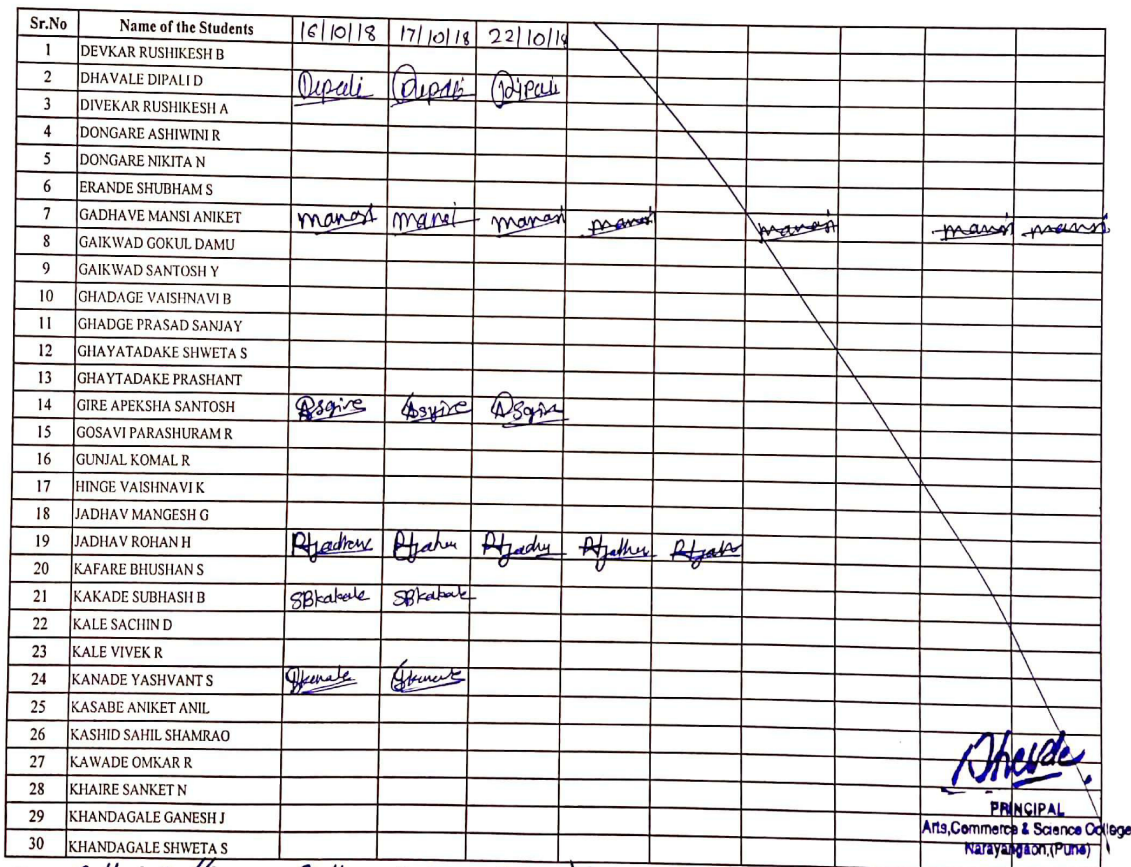 Sr.No Name of the Students 16/10/18 17/10/18 22/10/18
1 DEVKAR RUSHIKESH B
2 DHAVALE DIPALI D Dipali Dipali Dipali
3 DIVEKAR RUSHIKESH A
4 DONGARE ASHIWINI R
5 DONGARE NIKITA N
6 ERANDE SHUBHAM S
7 GADHAVE MANSI ANIKET mansi mansi mansi mansi mansi mansi mansi
8 GAIKWAD GOKUL DAMU
9 GAIKWAD SANTOSH Y
10 GHADAGE VAISHNAVI B
11 GHADGE PRASAD SANJAY
12 GHAYATADAKE SHWETA S
13 GHAYTADAKE PRASHANT
14 GIRE APEKSHA SANTOSH Asgire Asgire Asgire
15 GOSAVI PARASHURAM R
16 GUNJAL KOMAL R
17 HINGE VAISHNAVI K
18 JADHAV MANGESH G
19 JADHAV ROHAN H
20 KAFARE BHUSHAN S
21 KAKADE SUBHASH B SBkakade SBkakade
22 KALE SACHIN D
23 KALE VIVEK R
24 KANADE YASHVANT S
25 KASABE ANIKET ANIL
26 KASHID SAHIL SHAMRAO
27 KAWADE OMKAR R
28 KHAIRE SANKET N
29 KHANDAGALE GANESH J
30 KHANDAGALE SHWETA S
PRINCIPAL
Arts,Commerce & Science College
Narayangaon,(Pune)